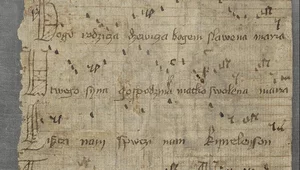 Bogv rodzicza dzewicza bogem slawena maria
twego syna gospodzina matko swolena maria
nam spwczi nam Kyrieleison